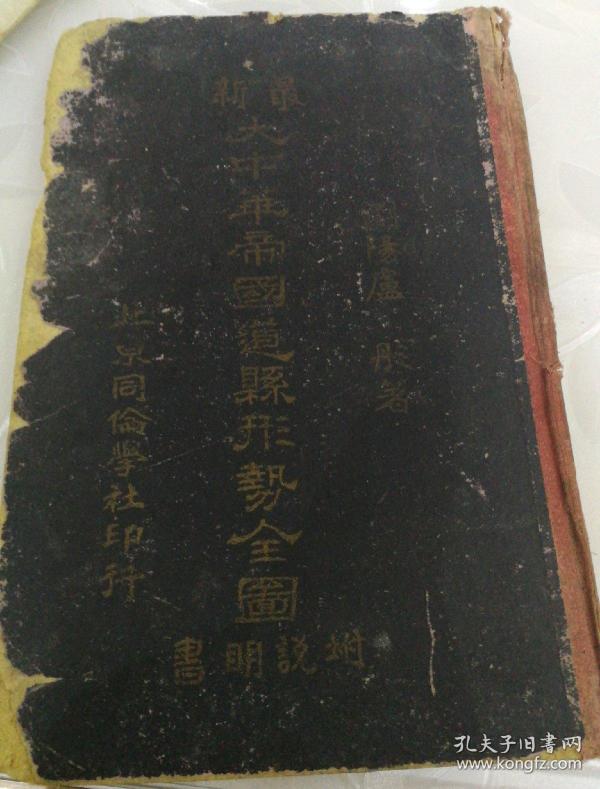 最新
大中華帝國道縣形勢全圖
附說明書
陽盧彤著
北京同倫學社印行
孔夫子旧書网
www.kongfz.com